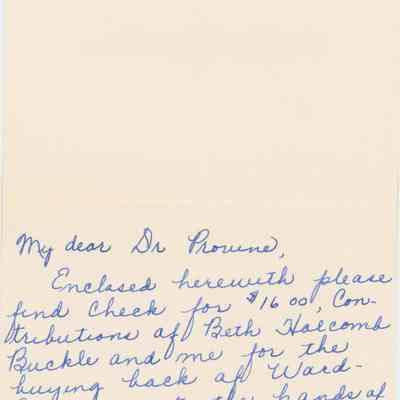 My dear Dr Provine,
Enclosed herewith please
find check for $16 00, Con-
tributions of Beth Holcomb
Buckle and me for the
buying back of Ward-
the hands of